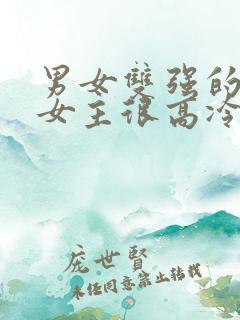 男女雙强的
女王很高冷
庞世賢
未经同意禁止转载